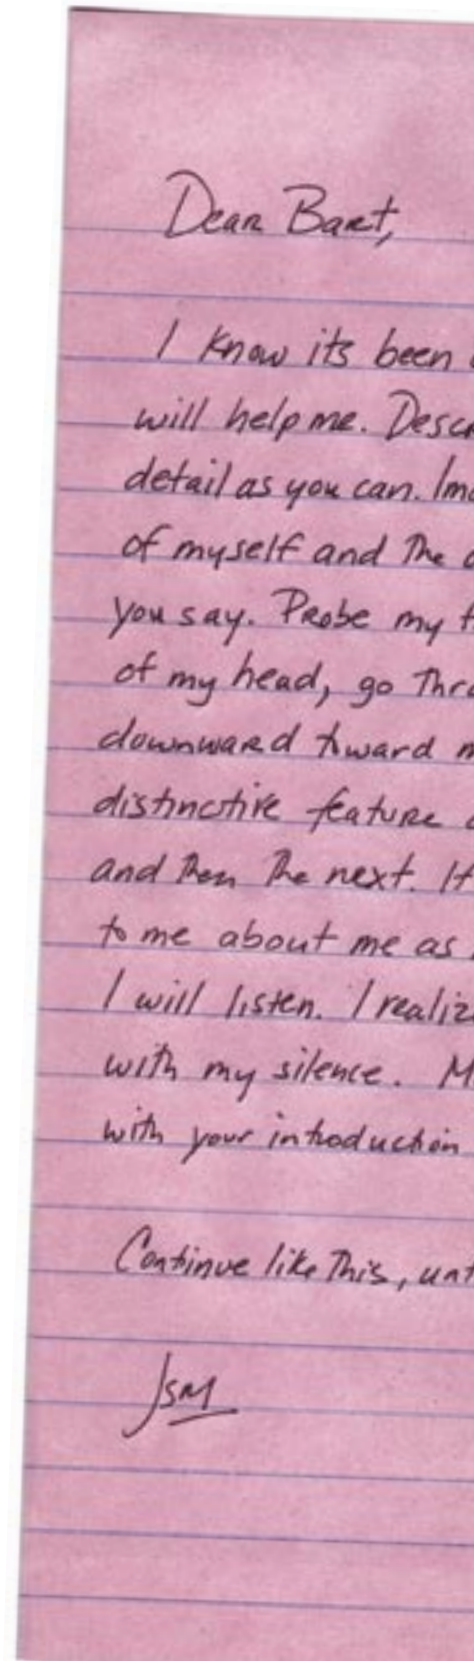 Dear Bart,
I know its been
will help me. Desc
detail as you can. Ima
of myself and the
you say. Probe my
of my head, go thro
downward toward m
distinctive feature
and then the next. If
to me about me as
I will listen. I realiz
with my silence. M
with your introduction
Continue like this, unt
JSM